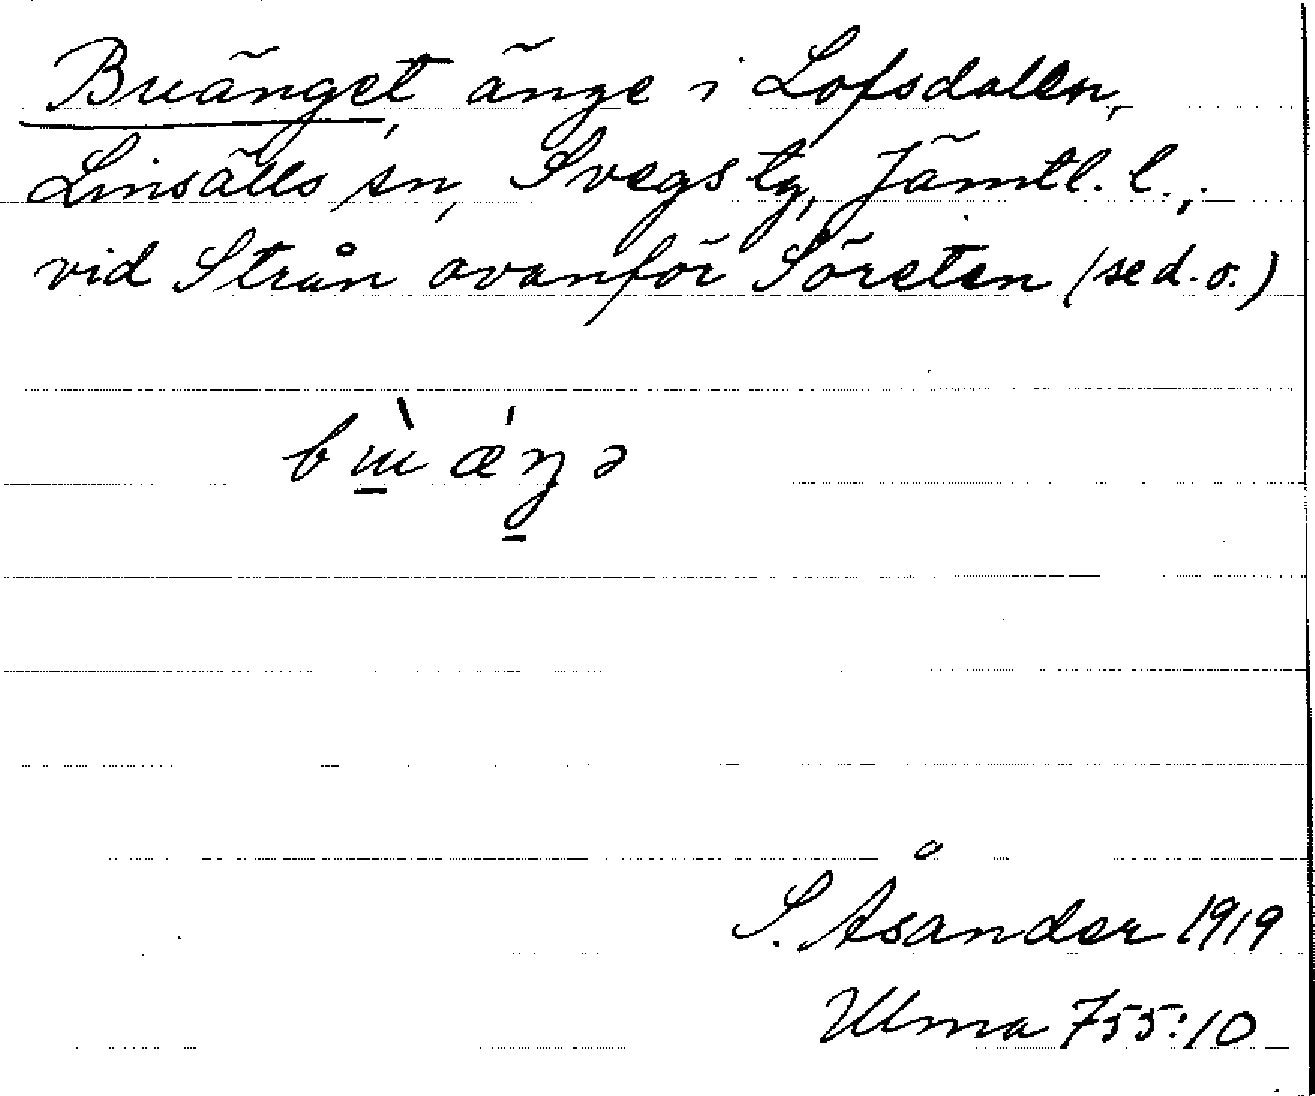 Buänget, änge i Lofsdalen,
Linsälls sn, Svegs tg, Jämtl. l.,
vid Strån ovanför Söreten (se d. o.)
bɯ̀ ǽŋə
S. Åsander 1919
Ulma 755:10